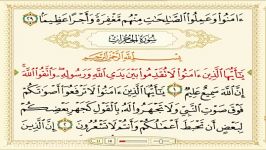 ءَامَنُوا۟ وَعَمِلُوا۟ ٱلصَّـٰلِحَـٰتِ مِنْهُم مَّغْفِرَةً وَأَجْرًا عَظِيمًۢا ٢٩
سُورَةُ الحُجُرَاتِ
بِسْمِ ٱللَّهِ ٱلرَّحْمَـٰنِ ٱلرَّحِيمِ
يَـٰٓأَيُّهَا ٱلَّذِينَ ءَامَنُوا۟ لَا تُقَدِّمُوا۟ بَيْنَ يَدَىِ ٱللَّهِ وَرَسُولِهِۦ ۖ وَٱتَّقُوا۟ ٱللَّهَ
إِنَّ ٱللَّهَ سَمِيعٌ عَلِيمٌ ١ يَـٰٓأَيُّهَا ٱلَّذِينَ ءَامَنُوا۟ لَا تَرْفَعُوٓا۟ أَصْوَٰتَكُمْ
فَوْقَ صَوْتِ ٱلنَّبِىِّ وَلَا تَجْهَرُوا۟ لَهُۥ بِٱلْقَوْلِ كَجَهْرِ بَعْضِكُمْ
لِبَعْضٍ أَن تَحْبَطَ أَعْمَـٰلُكُمْ وَأَنتُمْ لَا تَشْعُرُونَ ٢ إِنَّ ٱلَّذِينَ